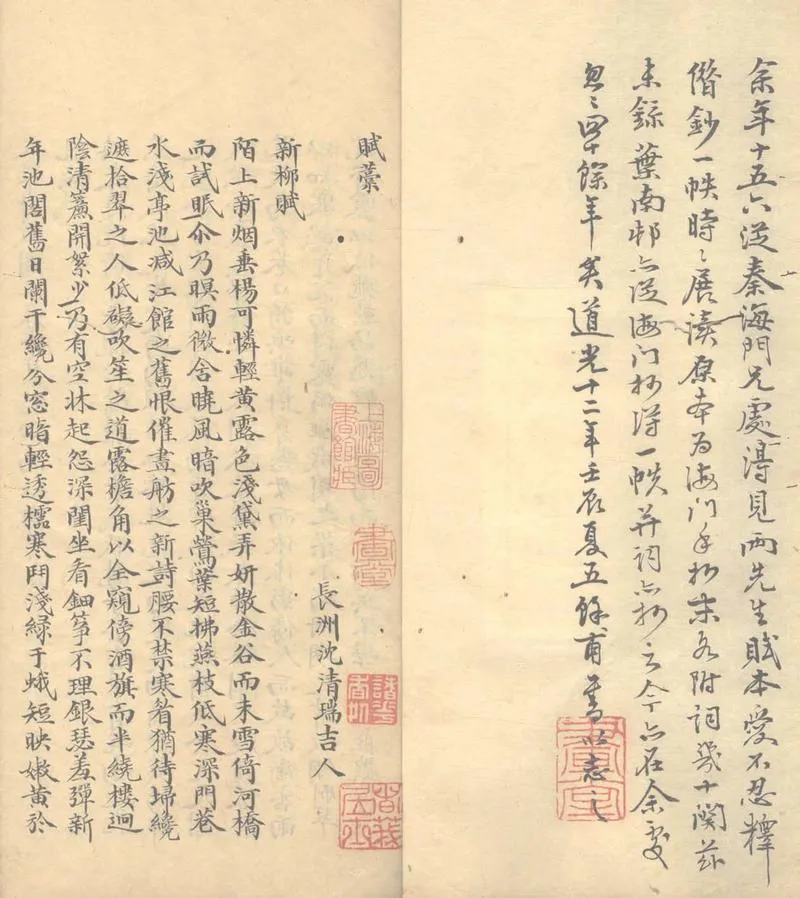 余年十五六從秦海門兄處得見兩先生賦本愛不忍釋
借鈔一帙時〻展讀原本為海門手抄末各附詞幾十闋茲
未錄葉南邨亦從海门抄得一帙并詞亦抄之今亦在余處
忽〻四十餘年矣道光十二年壬辰夏五餘甫舊以志之
賦藁
長洲沈清瑞吉人
新柳賦
陌上新烟垂楊可憐輕黃露色淺黛弄妍散金谷而未雪倚河橋
而試眠尒乃暝雨微含曉風暗吹巢鶯葉短拂燕枝低寒深門巷
水淺亭池减江館之舊恨催畫舫之新詩腰不禁寒眉猶待埽纔
遮拾翠之人低礙吹笙之道露檐角以全窺傍酒旗而半繞樓迥
陰清簾開絮少乃有空牀起怨深閨坐看鈿箏不理銀瑟羞彈新
年池閣舊日闌干纔分窓暗輕透櫺寒鬥淺綠于蛾短映嫩黃於
上海圖
書館藏